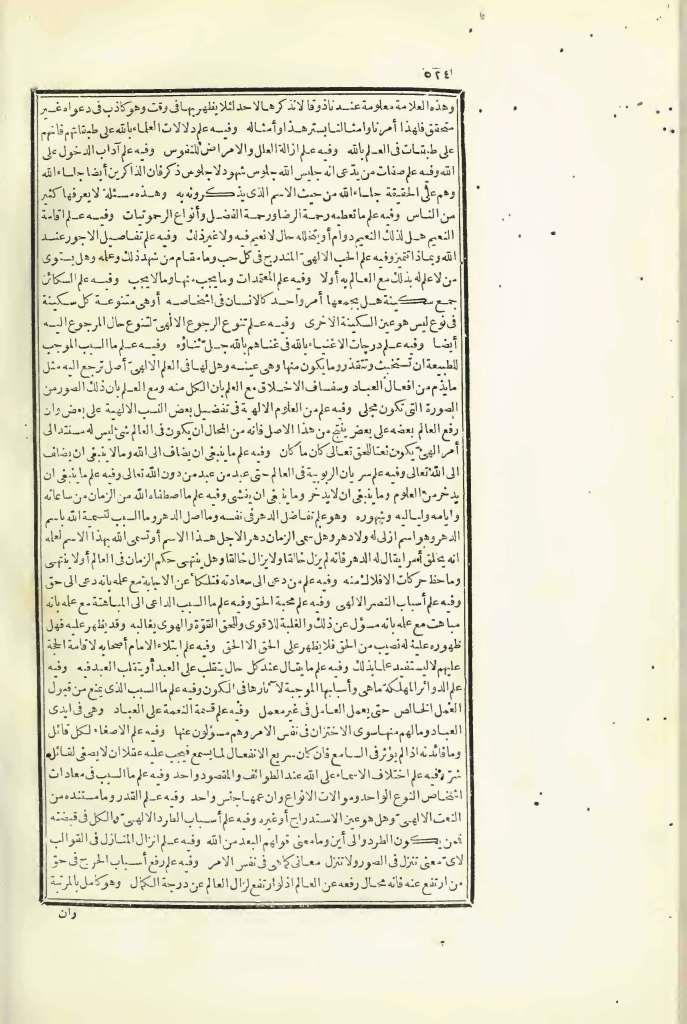 ٥٢٤
وهذه العلامة معلومة عندنا ذوقا لانذكرها لاحد لئلا يظهر بها فى وقت وهو كاذب فى دعواه غير
متحقق فلهذا أمرنا وأمثالنا بستر هذا وأمثاله وفيه علم دلالات العلماء بالله على طبقاتهم فانهم
على طبقات فى العلم بالله وفيه علم ازالة العلل والامراض للنفوس وفيه علم آداب الدخول على
الله وفيه علم صفات من يدّعى انه جليس الله جلوس شهود لا جلوس ذكر فان الذاكرين أيضا جلساء الله
وهم على الحقيقة جلساء الله من حيث الاسم الذى يذكرونه به وهذه مسئلة لا يعرفها كثير
من الناس وفيه علم ما تعطيه رحمة الرضا ورحمة الفضل وأنواع الرحموتيات وفيه علم اقامة
النعيم هل لذلك النعيم دوام أو يتخلله حال لا نعيم فيه ولا غير ذلك وفيه علم تفاصيل الاجور عند
الله وبماذا تتميز وفيه علم الحب الالهىّ المندرج فى كل حب وما مقام من شهد ذلك وعلمه وهل يستوى
من لا علم له بذلك مع العالم به أولا وفيه علم المعتمدات وما يجب منها وما لا يجب وفيه علم السكائن
جمع سكينة هل يجمعها أمر واحد كالانسان فى اشخاصه أو هى متنوعة كل سكينة
فى نوع ليس هو عين السكينة الاخرى وفيه علم تنوع الرجوع الالهىّ لتنوع حال المرجوع اليه
أيضا وفيه علم درجات الاغنياء بالله فى غناهم بالله جلّ ثناؤه وفيه علم ما السبب الموجب
للطبيعة ان تستخبث وتتقذر وما يكون منها وهى عينه وهل لها فى العلم الالهىّ أصل ترجع اليه مثل
ما يذم من افعال العباد وسفساف الاخلاق مع العلم بان الكل منه ومع العلم بان ذلك الصور من
الصورة التى تكون مجلى وفيه علم من العلوم الالهية فى تفضيل بعض النسب الالهية على بعض وان
رفع العالم بعضه على بعض ينتج من هذا الاصل فانه من المحال ان يكون فى العالم شئ ليس له مستند الى
أمر الهىّ يكون نعتا للحق تعالى كان ما كان وفيه علم ما ينبغى ان يضاف الى الله وما لا ينبغى ان يضاف
الى الله تعالى وفيه علم سريان الربوبية فى العالم حتى عبد من عبد من دون الله تعالى وفيه علم ما ينبغى ان
يدخر من العلوم وما ينبغى ان لا يدخر وما ينبغى ان يفشى وفيه علم ما اصطفاه الله من الزمان من ساعاته
وايامه ولياليه وشهوره وهو علم تفاضل الدهر فى نفسه وما اصل الدهر وما السبب لتسمية الله باسم
الدهر وهو اسم ازلى له ولا دهر وهل سمى الزمان دهرا لاجل هذا الاسم أو تسمى الله بهذا الاسم لعلمه
انه يخلق أمرا يقال له الدهر فانه لم يزل خالقا ولا يزال خالقا وهل ينتهى حكم الزمان فى العالم أو لا ينتهى
وما حظ حركات الافلاك منه وفيه علم من دعى الى سعادته فتلكأ عن الاجابة مع علمه بانه دعى الى حق
وفيه علم أسباب النصر الالهى وفيه علم محبة الحق وفيه علم ما السبب الداعى الى المباهتة مع علمه بانه
مباهت مع علمه بانه مسؤل عن ذلك والغلبة للاقوى وللحق القوّة والهوى يغالبه وقد يظهر عليه فهل
ظهوره عليه له نصيب من الحق فلا يظهر على الحق الا الحق وفيه علم ابتلاء الامام أصحابه لاقامة الحجة
عليهم لا ليستفيد علما بذلك وفيه علم ما يقال عند كل حال يتقلب على العبد أو يتقلب العبد فيه وفيه
علم الدوائر المهلكة ما هى وأسبابها الموجبة لآثارها فى الكون وفيه علم ما السبب الذى يمنع من قبول
العمل الخالص حتى يعمل العامل فى غير معمل وفيه علم قسمة النعمة على العباد وهى فى ايدى
العباد وما لهم منها سوى الاختزان فى نفس الامر وهم مسؤلون عنها وفيه علم الاصغاء لكل قائل
وما فائدته اذا لم يؤثر فى السامع فان كان سريع الانفعال لما يسمع فيجب عليه عقلا ان لا يصغى لقائل
شرّ وفيه علم اختلاف الاسماء على الله عند الطوائف والمقصود واحد وفيه علم ما السبب فى معادات
اشخاص النوع الواحد وموالات الانواع وان عمها جنس واحد وفيه علم القدر وما مستنده من
النعت الالهىّ وهل هو عين الاستدراج أو غيره وفيه علم أسباب الطرد الالهىّ والكل فى قبضته
فمن يكون الطرد والى أين وما معنى قولهم البعد من الله وفيه علم انزال المنازل فى القوالب
لاىّ معنى تتنزل فى الصور ولا تتنزل معانى كما هى فى نفس الامر وفيه علم رفع أسباب الحرج فى حق
من ارتفع عنه فانه محال رفعه عن العالم اذ لو ارتفع لزال العالم عن درجة الكمال وهو كامل بالمرتبة
وان